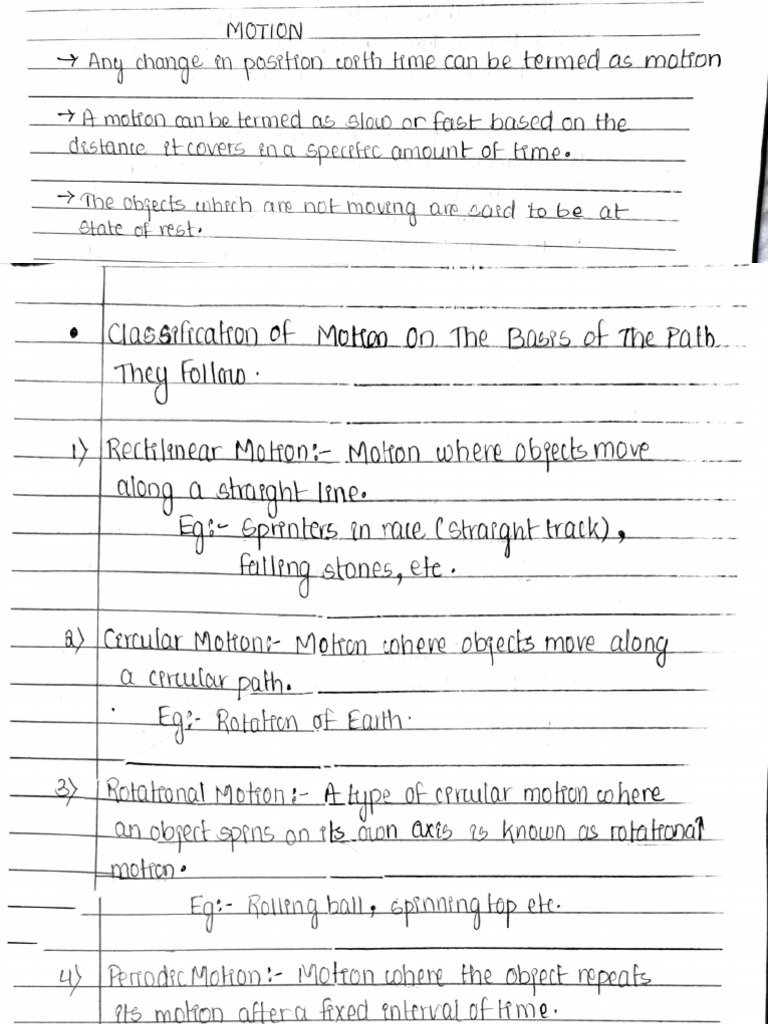 MOTION
→ Any change in position with time can be termed as motion
→ A motion can be termed as slow or fast based on the
distance it covers in a specific amount of time.
→ The objects which are not moving are said to be at
state of rest.
• Classification of Motion On The Basis of The Path
They Follow.
1) Rectilinear Motion:- Motion where objects move
along a straight line.
Eg:- Sprinters in race (straight track),
falling stones, etc.
2) Circular Motion:- Motion where objects move along
a circular path.
Eg:- Rotation of Earth.
3) Rotational Motion:- A type of circular motion where
an object spins on its own axis is known as rotational
motion.
Eg:- Rolling ball, spinning top etc.
4) Periodic Motion:- Motion where the object repeats
its motion after a fixed interval of time.